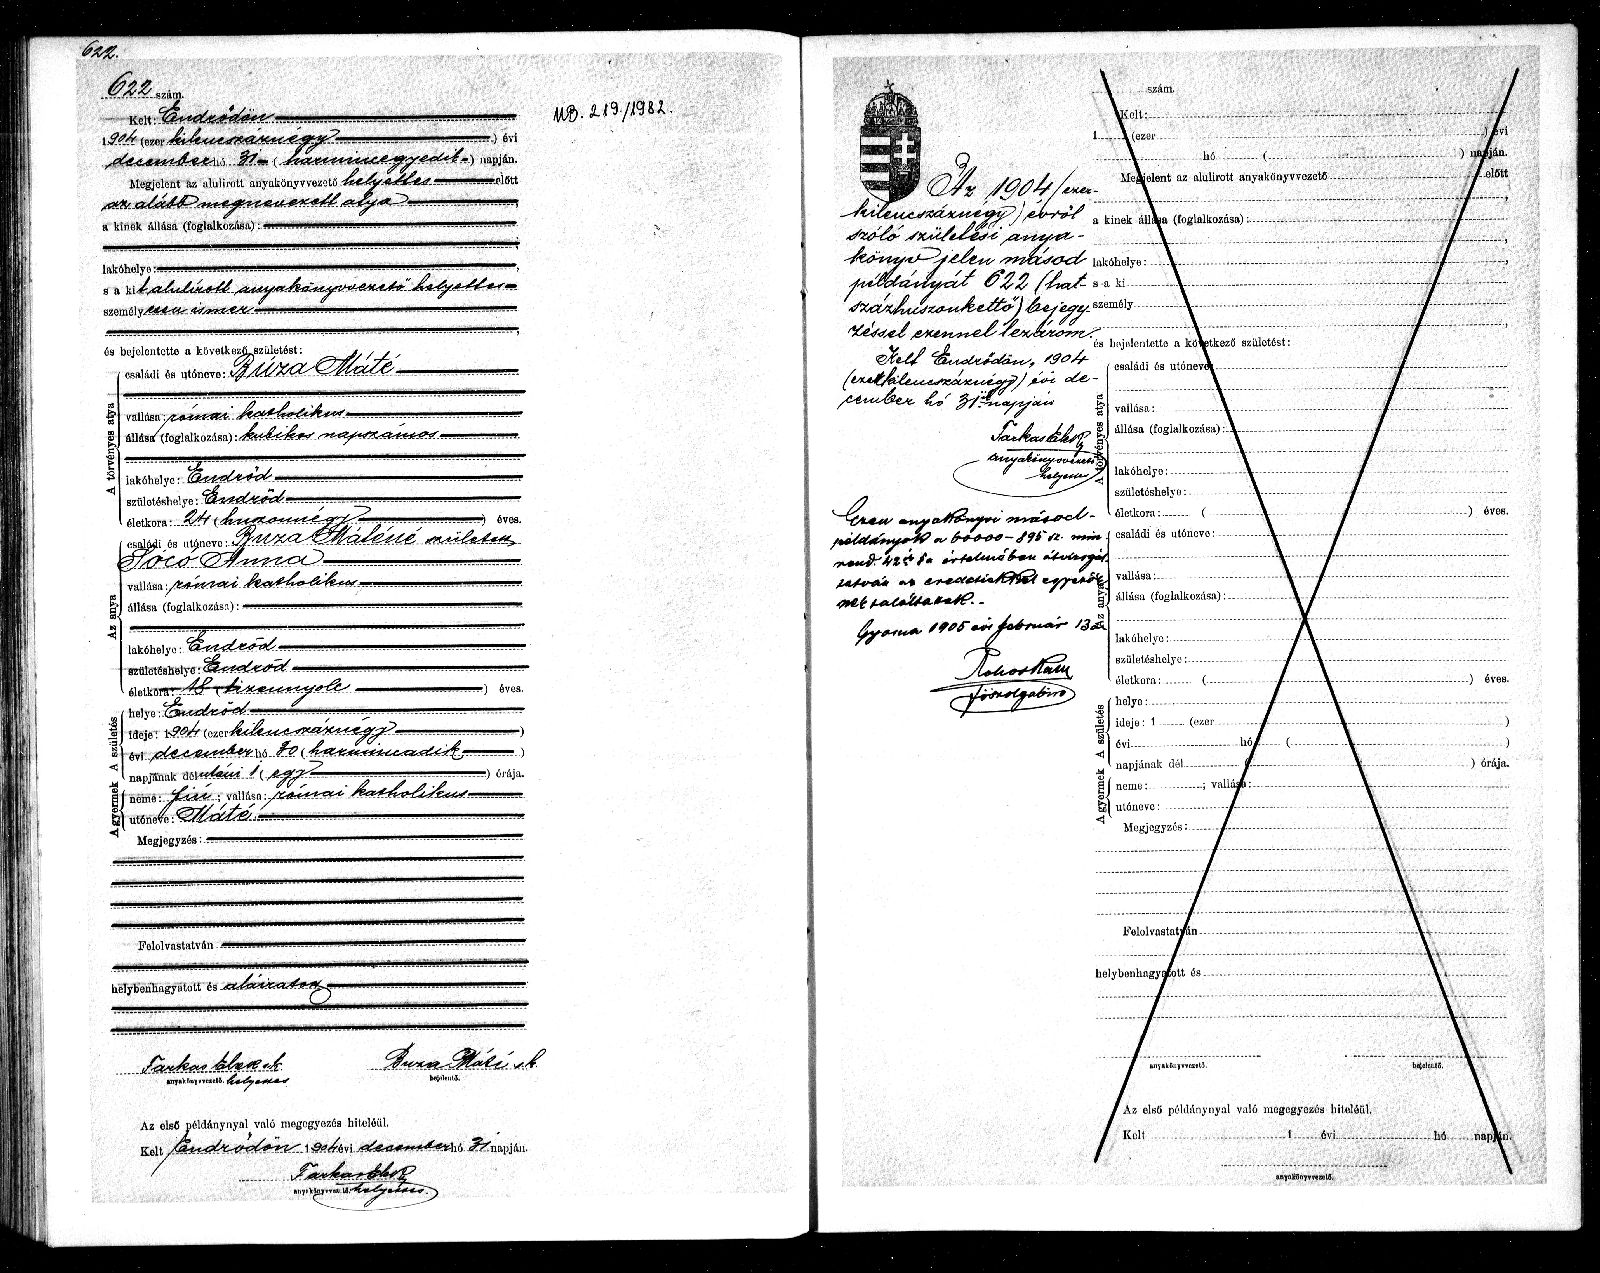 622.
622 szám.
MB. 219./1982.
Kelt: Endrődön
1904 (ezer kilenczszáznégy) évi
december hó 31 (harminczegyedik) napján.
Megjelent az alulirott anyakönyvvezető helyettes előtt
az alább megnevezett atya
a kinek állása (foglalkozása):
lakóhelye:
s a kit alulírott anyakönyvvezető helyettes
személyesen ismer
és bejelentette a következő születést:
A törvényes atya
családi és utóneve: Búza Máté
vallása: római katholikus
állása (foglalkozása): kubikos napszámos
lakóhelye: Endrőd
születéshelye: Endrőd
életkora: 24 (huszonnégy) éves.
Az anya
családi és utóneve: Búza Máténé született
Sócó Anna
vallása: római katholikus
állása (foglalkozása):
lakóhelye: Endrőd
születéshelye: Endrőd
életkora: 18 tizennyolc) éves.
A születés
helye: Endrőd
ideje: 1904 (ezer kilenczszáznégy)
évi december hó 30 (harminczadik)
napjának délutáni 1 (egy) órája.
A gyermek
neme: fiú; vallása: római katholikus
utóneve: Máté
Megjegyzés:
Felolvastatván
helybenhagyatott és aláiratott
Farkas Elek sk Buza Máté sk
anyakönyvvezető. helyettes bejelentő.
Az első példánynyal való megegyezés hiteléül.
Kelt Endrődön 1904 évi december hó 31 napján.
Farkas Elek
anyakönyvvezető. helyettes.
Az 1904 (ezer-
kilenczszáznégy) évről
szóló születési anya-
könyv jelen másod
példányát 622 (hat-
százhuszonkettő) bejegy-
zéssel ezennel lezárom.
Kelt Endrődön, 1904
(ezerkilenczszáznégy) évi de-
cember hó 31ik napján
Farkas Elek
anyakönyvvezető
helyettes
Ezen anyakönyvi másod-
példányok a 60000-895 sz. min
rend. 42ik §a értelmében átvizsgál-
tatván az eredetiekkel egyezők-
nek találtattak.
Gyoma 1905 évi február 13án
főszolgabiró
szám.
Kelt:
1 (ezer ) évi
hó ( ) napján.
Megjelent az alulirott anyakönyvvezető előtt
a kinek állása (foglalkozása):
lakóhelye:
s a ki
személy
és bejelentette a következő születést:
A törvényes atya
családi és utóneve:
vallása:
állása (foglalkozása):
lakóhelye:
születéshelye:
életkora: ( ) éves.
Az anya
családi és utóneve:
vallása:
állása (foglalkozása):
lakóhelye:
születéshelye:
életkora: ( ) éves.
A születés
helye:
ideje: 1 (ezer )
évi hó ( )
napjának dél ( ) órája.
A gyermek
neme: ; vallása:
utóneve:
Megjegyzés:
Felolvastatván
helybenhagyatott és
anyakönyvvezető. bejelentő.
Az első példánynyal való megegyezés hiteléül.
Kelt 1 évi hó napján.
anyakönyvvezető.